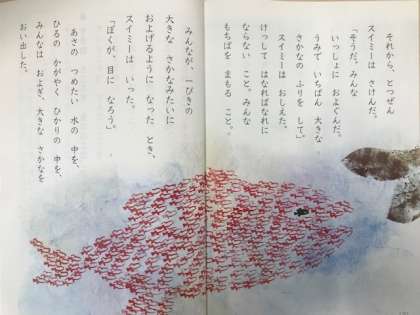 それから、とつぜん
スイミーは さけんだ。
「そうだ。みんな
いっしょに およぐんだ。
うみで いちばん 大きな
さかなの ふりを して」
スイミーは おしえた。
けっして はなればなれに
ならない こと。みんな
もちばを まもる こと。
みんなが、一ぴきの
大きな さかなみたいに
およげるように なった とき、
スイミーは いった。
「ぼくが、目に なろう。」
あさの つめたい 水の 中を、
ひるの かがやく ひかりの 中を、
みんなは およぎ、大きな さかなを
おい出した。